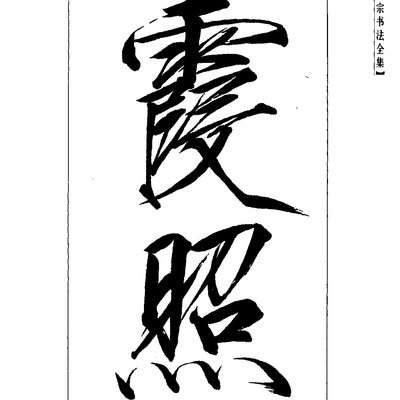 宗书法全集】
霞
照